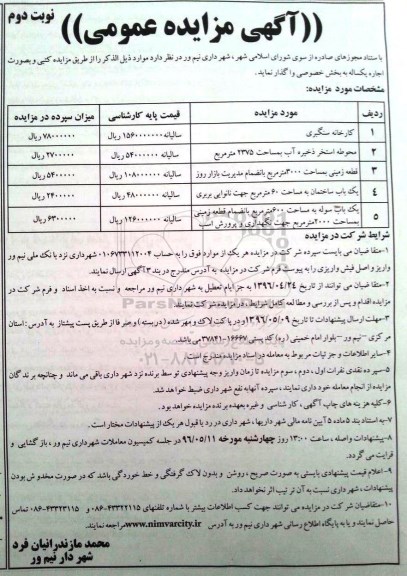 نوبت دوم
((آگهی مزایده عمومی))
با ستناد مجوزهای صادره از سوی شورای اسلامی شهر، شهرداری نیم ور در نظر دارد موارد ذیل الذکر را از طریق مزایده کتبی و بصورت
اجاره یکساله به بخش خصوصی واگذار نماید.
مشخصات مورد مزایده:
ردیف مورد مزایده قیمت پایه کارشناسی میزان سپرده در مزایده
۱ کارخانه سنگبری سالیانه ۱۵۶۰۰۰۰۰۰۰ ریال ۷۸۰۰۰۰۰۰ ریال
۲ محوطه استخر ذخیره آب بمساحت ۲۳۷۵ مترمربع سالیانه ۵۴۰۰۰۰۰۰ ریال ۲۷۰۰۰۰۰ ریال
۳ قطعه زمینی بمساحت ۳۰۰۰مترمربع بانضمام مدیریت بازار روز سالیانه ۱۰۸۰۰۰۰۰۰ ریال ۵۴۰۰۰۰۰ ریال
۴ یک باب ساختمان به مساحت ۶۰ مترمربع جهت نانوایی بربری سالیانه ۴۸۰۰۰۰۰۰ ریال ۲۴۰۰۰۰۰ ریال
۵ یک باب سوله به مساحت ۶۰۰مترمربع بانضمام قطعه زمینی سالیانه ۱۲۶۰۰۰۰۰۰ ریال ۶۳۰۰۰۰۰ ریال
بمساحت ۲۰۰۰مترمربع جهت نگهداری و پرورش اسب
شرایط شرکت در مزایده
۱-متقاضیان می بایست سپرده شرکت در مزایده هر یک از موارد فوق را به حساب ۰۱۰۶۷۳۳۱۱۲۰۰۴ شهرداری نزد بانک ملی نیم ور
واریز و اصل فیش واریزی را به پیوست فرم شرکت در مزایده به آدرس مندرج در بند ۳ آگهی ارسال نمایند.
۲-متقاضیان می توانند از تاریخ ۱۳۹۶/۰۴/۲۴ به جز ایام تعطیل به شهرداری نیم ور مراجعه و نسبت به اخذ اسناد و فرم شرکت در
مزایده اقدام و پس از بررسی و مطالعه کامل شرایط، در مزایده شرکت نمایند.
۳-مهلت ارسال پیشنهادات تا تاریخ ۱۳۹۶/۰۵/۰۹ و در پاکت لاک و مهر شده (دربسته) و صرفا از طریق پست پیشتاز به آدرس: استان
مرکزی - نیم ور - بلوار امام خمینی (ره) کد پستی ۱۶۶۶۷-۳۷۸۴۱ می باشد.
۴-سایر اطلاعات و جزئیات مربوط به معامله در اسناد مزایده مندرج است.
۵-سپرده نقدی نفرات اول، دوم، سوم مزایده تا زمان واریز وجه پیشنهادی توسط برنده نزد شهرداری باقی می ماند و چنانچه برندگان
مزایده از انجام معامله خودداری نمایند، سپرده آنها به نفع شهرداری ضبط خواهد شد.
۶-کلیه هزینه های چاپ آگهی، کارشناسی و غیره بعهده برنده مزایده خواهد بود.
۷-به استناد بند ۵ ماده ۵ آیین نامه مالی شهرداریها، شهرداری در رد یا قبول هر یک از پیشنهادات مختار است.
۸-پیشنهادات واصله، ساعت ۱۳:۰۰ روز چهارشنبه مورخه ۹۶/۰۵/۱۱ در جلسه کمیسیون معاملات شهرداری نیم ور، بازگشایی و
قرایت می گردد.
۹-اعلام قیمت پیشنهادی بایستی به صورت صریح، روشن و بدون لاک گرفتگی و خط خوردگی باشد که در صورت مخدوش بودن
پیشنهادات، شهرداری نسبت به آن ترتیب اثر نخواهد داد.
۱۰-متقاضیان شرکت در مزایده می توانند جهت کسب اطلاعات بیشتر با شماره تلفنهای ۴۳۳۲۲۱۱۵-۰۸۶ و ۴۳۳۲۳۱۱۵-۰۸۶ تماس
حاصل نمایند و یا به پایگاه اطلاع رسانی شهرداری نیم ور به آدرس www.nimvarcity.ir مراجعه نمایند.
محمد مازندرانیان فرد
شهردار نیم ور